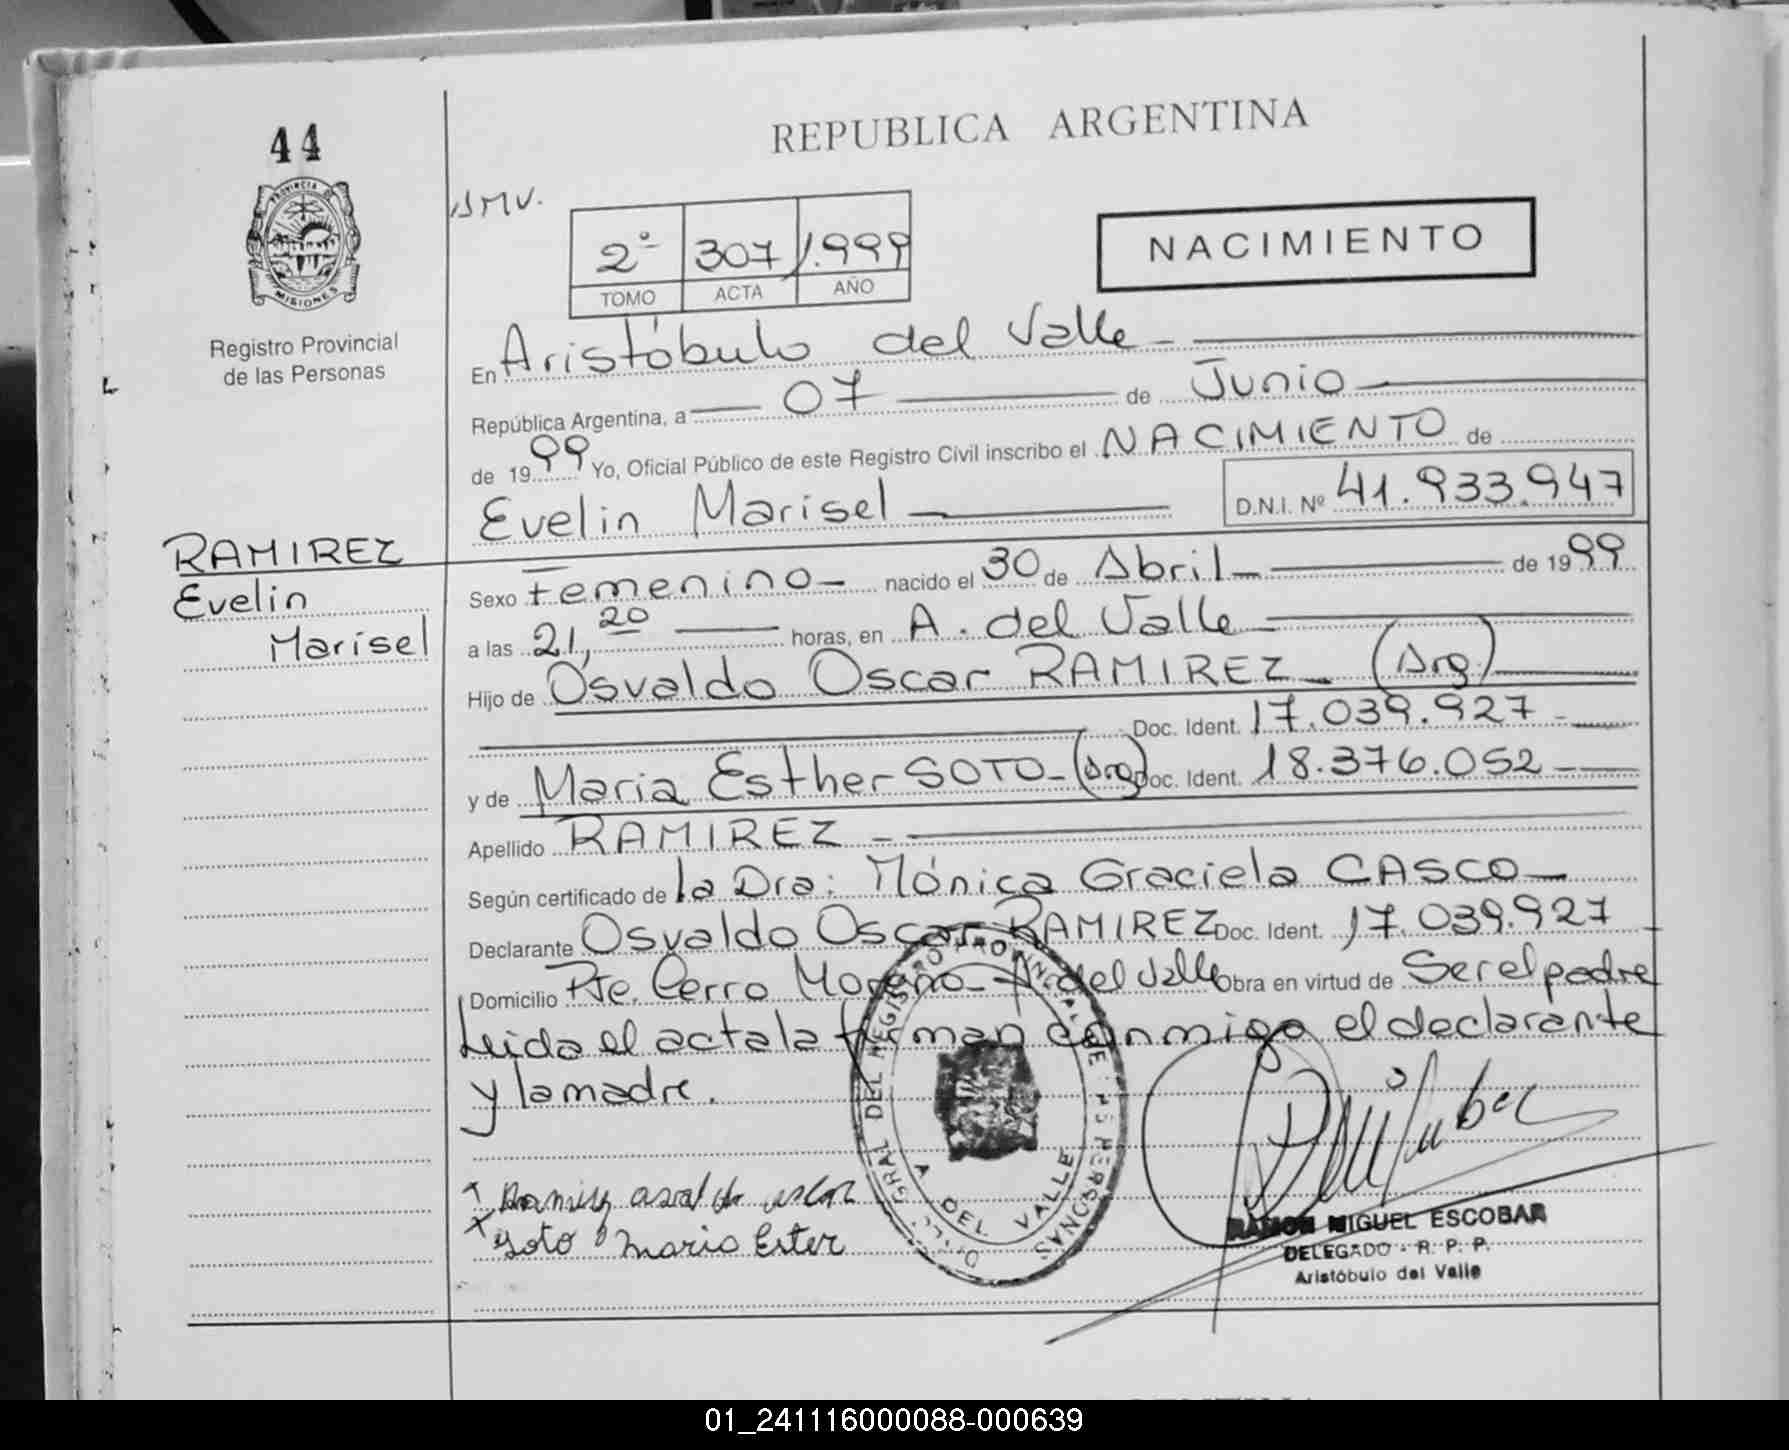 44
REPUBLICA ARGENTINA
PROVINCIA D
MISIONES
Registro Provincial
de las Personas
NACIMIENTO
2° 307 1.999
TOMO ACTA AÑO
En Aristóbulo del Valle
República Argentina, a 07 de Junio
de 1999 Yo, Oficial Público de este Registro Civil inscribo el NACIMIENTO de
Evelin Marisel D.N.I. Nº 41.933.947
RAMIREZ
Evelin
Marisel
Sexo Femenino nacido el 30 de Abril de 1999
a las 21,20 horas, en A. del Valle
Hijo de Osvaldo Oscar RAMIREZ (Arg)
Doc. Ident. 17.039.927
y de Maria Esther SOTO (Arg) Doc. Ident. 18.376.052
Apellido RAMIREZ
Según certificado de la Dra: Mónica Graciela CASCO
Declarante Osvaldo Oscar RAMIREZ Doc. Ident. 17.039.927
Domicilio Pte. Cerro Moreno - A del Valle Obra en virtud de Ser el padre
Leida el acta la firman conmigo el declarante
y la madre.
GRAL DEL REGISTRO PROVINCIAL DE PERSONAS
A DEL VALLE
Soto Maria Ester
RAMON MIGUEL ESCOBAR
DELEGADO - R. P. P.
Aristóbulo del Valle
01_241116000088-000639